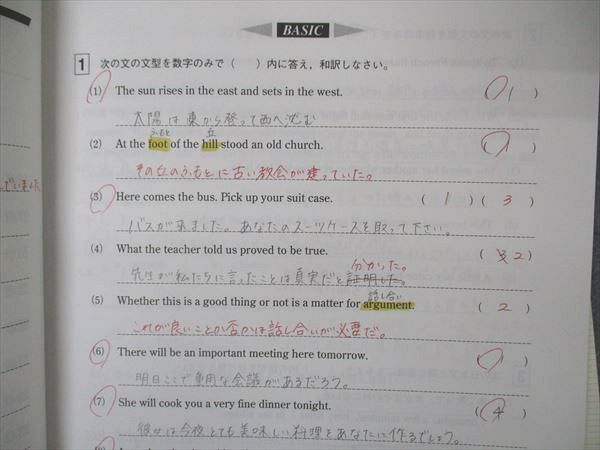 BASIC
1 次の文の文型を数字のみで（　）内に答え，和訳しなさい。
(1) The sun rises in the east and sets in the west. ( 1 )
太陽は東から登って西へ沈む
ふもと 丘
(2) At the foot of the hill stood an old church. ( 1 )
その丘のふもとに古い教会が建っていた。
(3) Here comes the bus. Pick up your suit case. ( 1 ) ( 3 )
バスが来ました。あなたのスーツケースを取って下さい。
(4) What the teacher told us proved to be true. ( 2 )
分かった。
先生が私たちに言ったことは真実だと証明した。
話し合い
(5) Whether this is a good thing or not is a matter for argument. ( 2 )
これが良いことか否かは話し合いが必要だ。
(6) There will be an important meeting here tomorrow. ( 1 )
明日ここで重要な会議があるだろう。
(7) She will cook you a very fine dinner tonight. ( 4 )
彼女は今夜とても美味しい料理をあなたに作るでしょう。